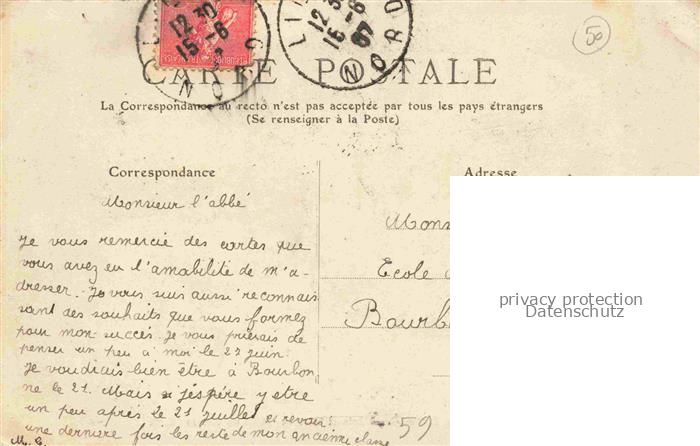 12 30
15-6
NO
LI
12 3
15-6
07
NORD
50
CARTE POSTALE
La Correspondance au recto n'est pas acceptée par tous les pays étrangers
(Se renseigner à la Poste)
Correspondance
Adresse
Monsieur l'abbé
Je vous remercie des cartes que
vous avez eu l'amabilité de m'a-
dresser. Je vous suis aussi reconnais
sant des souhaits que vous formez
pour mon succès. Je vous prierais de
penser un peu à moi le 27 juin.
Je voudrais bien être à Bourbon
ne le 21. Mais j'éspère y etre
un peu après le 21 juillet et revoir
une dernière fois les reste de mon ancienne classe
M. G.
Mons
Ecole
Bourb
59
privacy protection
Datenschutz